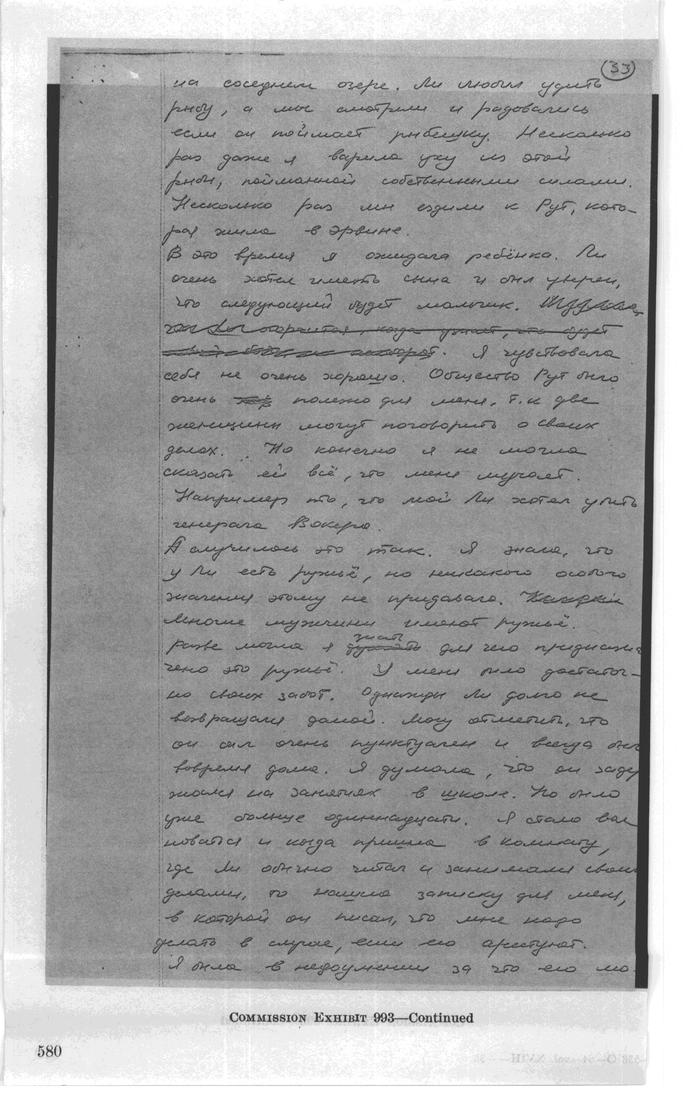 33
на соседнем озере. Ли любил удить
рыбу, а мы смотрели и радовались
если он поймает рыбешку. Несколько
раз даже я варила уху из этой
рыбы, пойманной собственными силами.
Несколько раз мы ездили к Рут, кото-
рая жила в Эрвине.
В это время я ожидала ребёнка. Ли
очень хотел иметь сына и был уверен,
что следующий будет мальчик.
огорчится, когда узнает, что будет
Я чувствовала
себя не очень хорошо. Общество Рут было
очень полезно для меня, т.к две
женщины могут поговорить о своих
делах. Но конечно я не могла
сказать ей всё, что меня мучает.
Например то, что мой Ли хотел убить
генерала Вокера.
А случилось это так. Я знала, что
у Ли есть ружьё, но никакого особого
значения этому не придавала.
Многие мужчины имеют ружьё.
Разве могла я знать для чего предназна
чено это ружьё. У меня было достаточ-
но своих забот. Однажды Ли долго не
возвращался домой. Могу отметить, что
он был очень пунктуален и всегда был
вовремя дома. Я думала, что он заде
жался на занятиях в школе. Но было
уже больше одиннадцати. Я стала вол
новаться и когда пришла в комнату,
где Ли обычно читал и занимался свои
делами, то нашла записку для меня,
в которой он писал, что мне надо
делать в случае, если его арестуют.
Я была в недоумении за что его мо
COMMISSION EXHIBIT 993—Continued
580